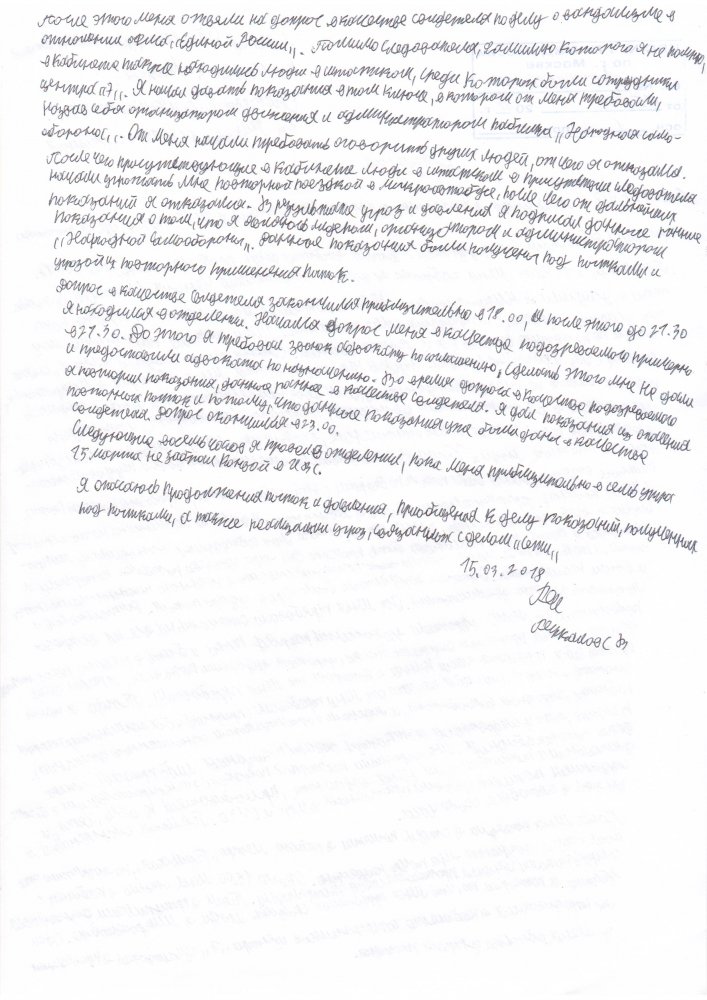 После этого меня отвели на допрос в качестве свидетеля по делу о вандализме в
отношении офиса „Единой России„. Помимо следователя, фамилию которого я не помню,
в кабинете также находились люди в штатском, среди которых были сотрудники
центра „Э„. Я начал давать показания в том ключе, в котором от меня требовали,
назвав себя организатором движения и администратором паблика „Народная само-
оборона„. От меня начали требовать оговорить других людей, от чего я отказался.
После чего присутствующие в кабинете люди в штатском в присутствии следователя
начали угрожать мне повторной поездкой в микроавтобусе, после чего от дальнейших
показаний я отказался. В результате угроз и давления я подписал данные ранние
показания о том, что я являюсь лидером, организатором и администратором
„Народной Самообороны„. Данные показания были получены под пытками и
угрозой повторного применения пыток.
Допрос в качестве свидетеля закончился приблизительно в 18.00, и после этого до 21.30
я находился в отделении. Начался допрос меня в качестве подозреваемого примерно
в 21.30. До этого я требовал звонок адвокату по соглашению, сделать этого мне не дали
и предоставили адвоката по назначению. Во время допроса в качестве подозреваемого
я повторил показания, данные ранее в качестве свидетеля. Я дал показания из опасения
повторных пыток и потому, что данные показания уже были даны в качестве
свидетеля. Допрос окончился в 23.00.
Следующие восемь часов я провел в отделении, пока меня приблизительно в семь утра
15 марта не забрал конвой в ИВС.
Я опасаюсь продолжения пыток и давления, приобщения к делу показаний, полученных
под пытками, а также реализации угроз, связанных с делом „Сети„
15.03.2018